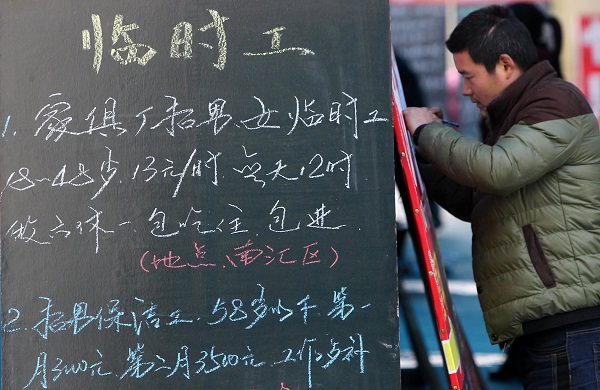 临时工
1. 家俱厂招男、女临时工
18—48岁.13元/时.每天12时
做六休一.包吃住.包进.
(地点.南汇区)
2. 招男保洁工.58岁以下.第一
月3000元.第二月3500元.工作